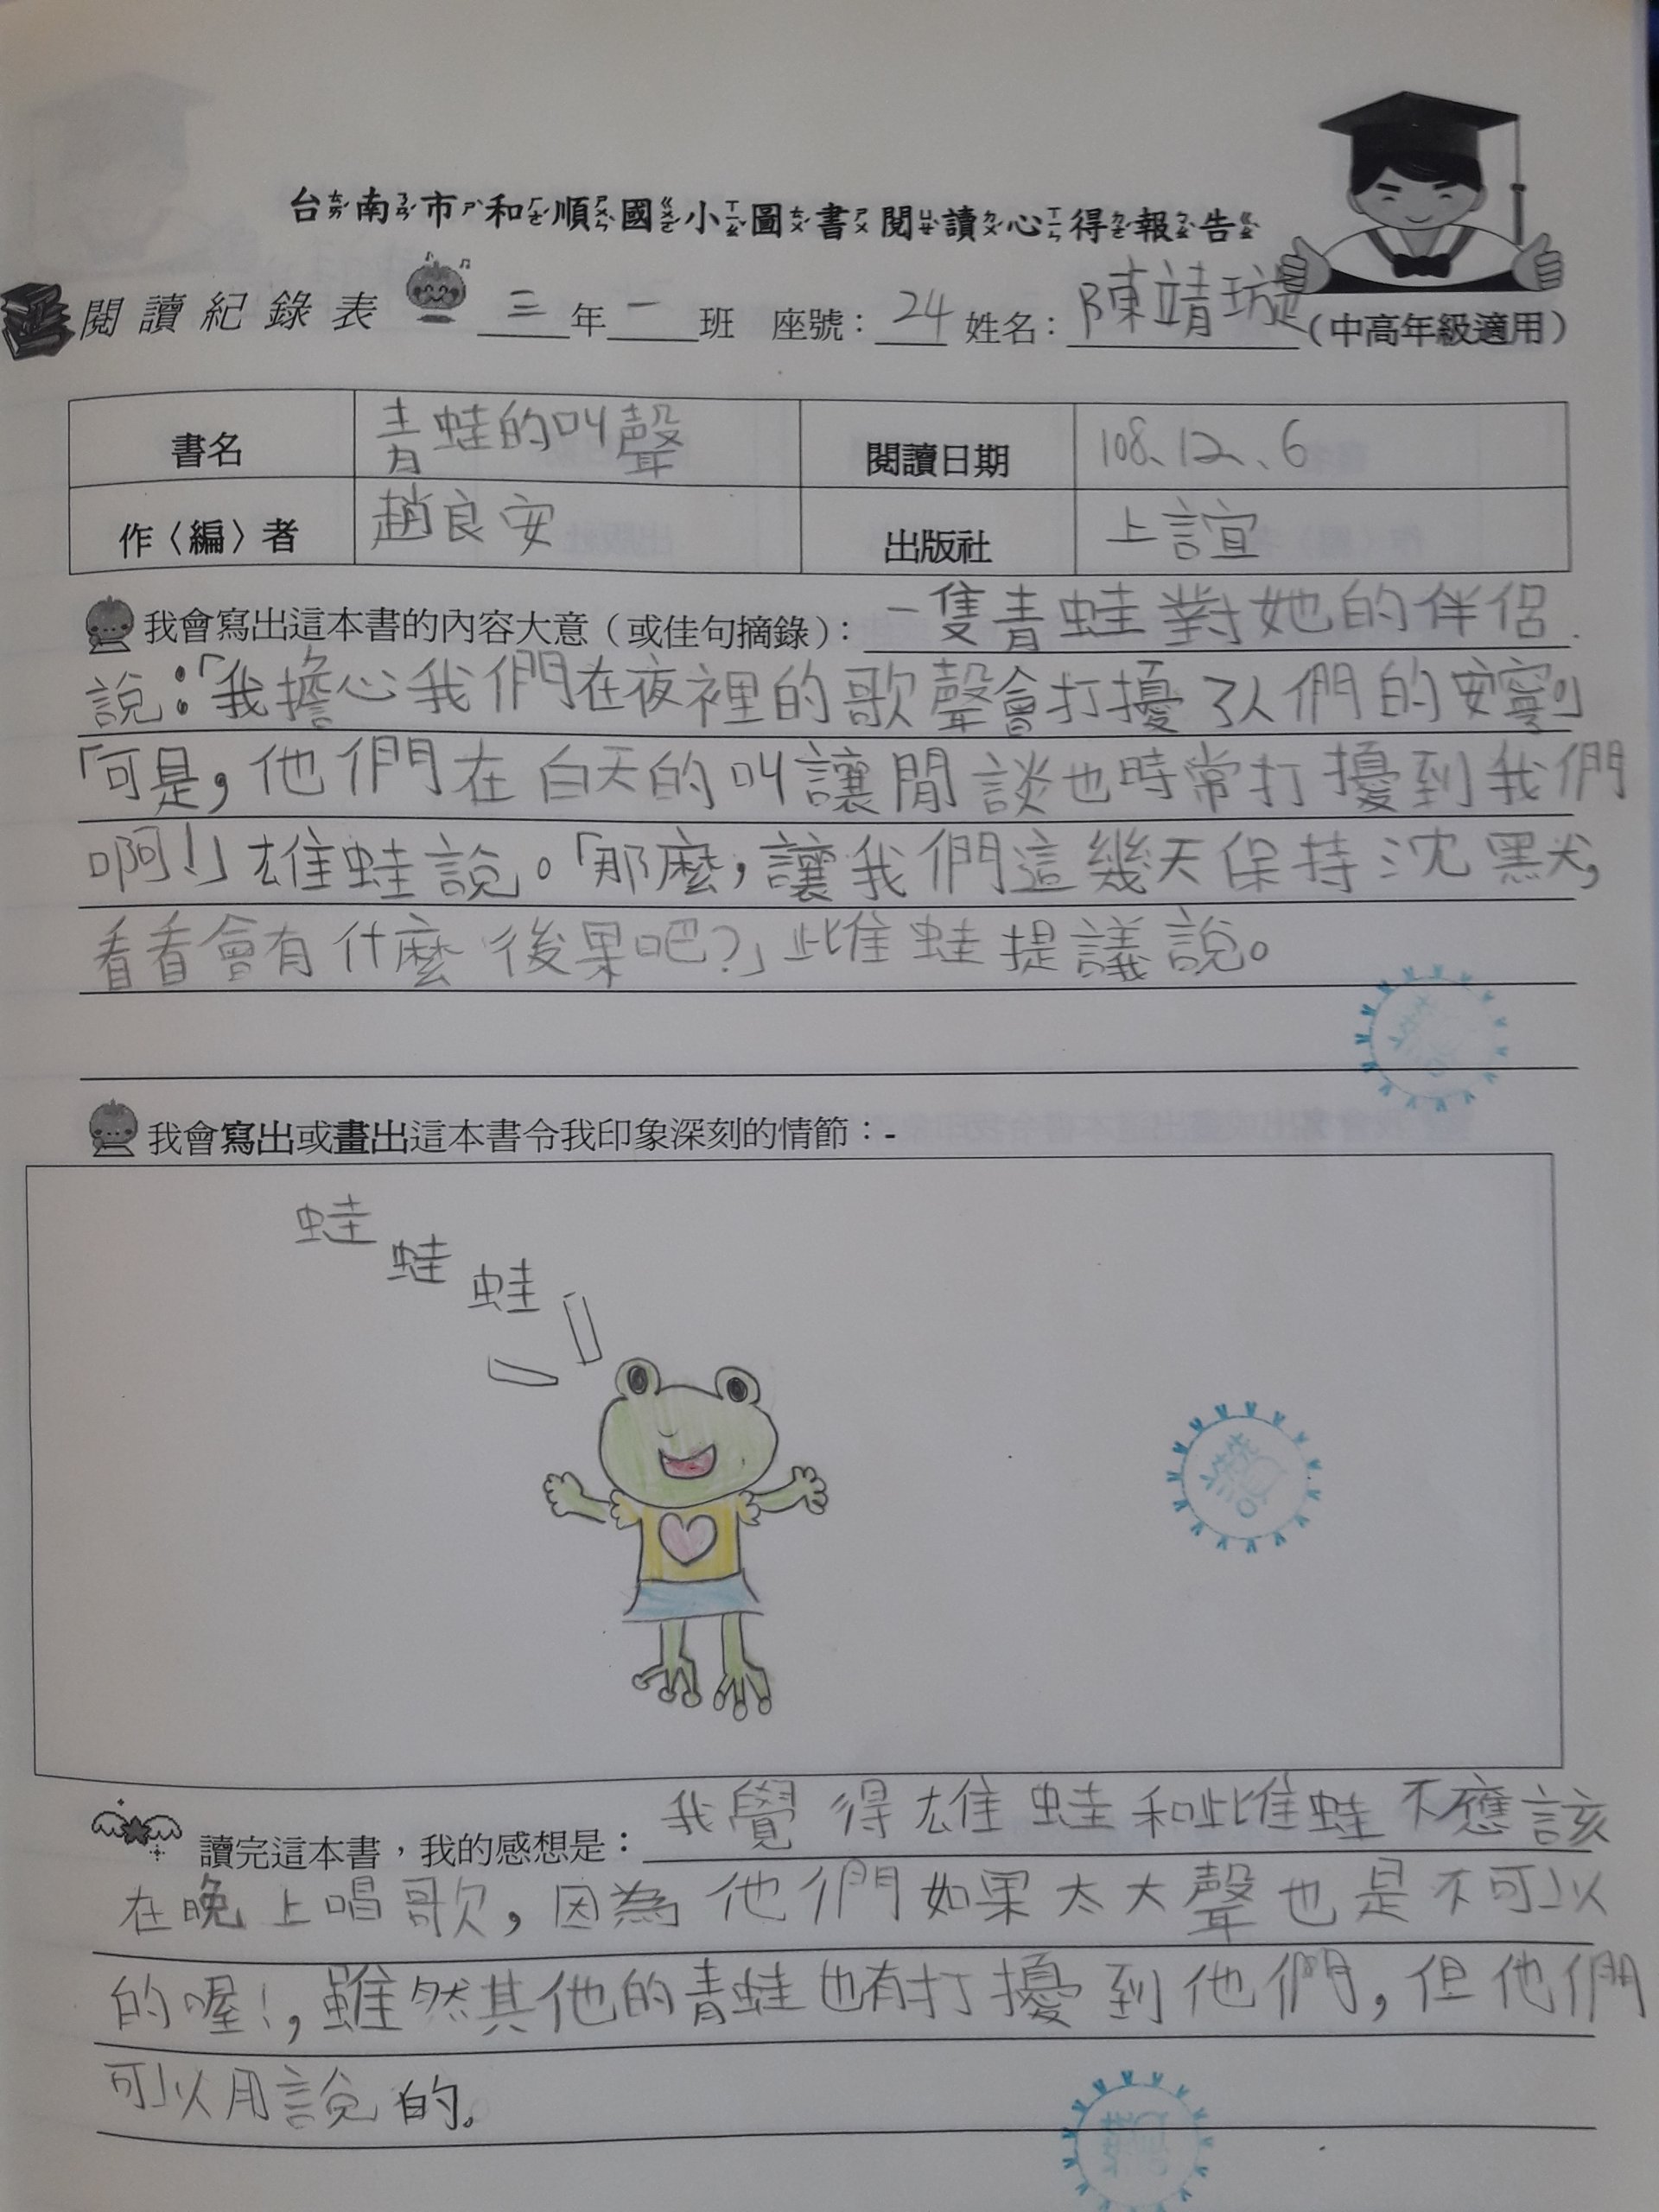 台南市和順國小圖書閱讀心得報告
閱讀紀錄表 三年一班 座號：24 姓名：陳靖璇(中高年級適用)
書名 青蛙的叫聲 閱讀日期 108、12、6
作〈編〉者 趙良安 出版社 上誼
我會寫出這本書的內容大意（或佳句摘錄）：一隻青蛙對她的伴侶
說：「我擔心我們在夜裡的歌聲會打擾了人們的安寧。」
「可是，他們在白天的叫讓閒談也時常打擾到我們
啊！」雄蛙說。「那麼，讓我們這幾天保持沈默，
看看會有什麼後果吧？」雌蛙提議說。
我會寫出或畫出這本書令我印象深刻的情節：-
蛙
蛙
蛙
讀完這本書，我的感想是：我覺得雄蛙和雌蛙不應該
在晚上唱歌，因為他們如果太大聲也是不可以
的喔！，雖然其他的青蛙也有打擾到他們，但他們
可以用說的。
讚